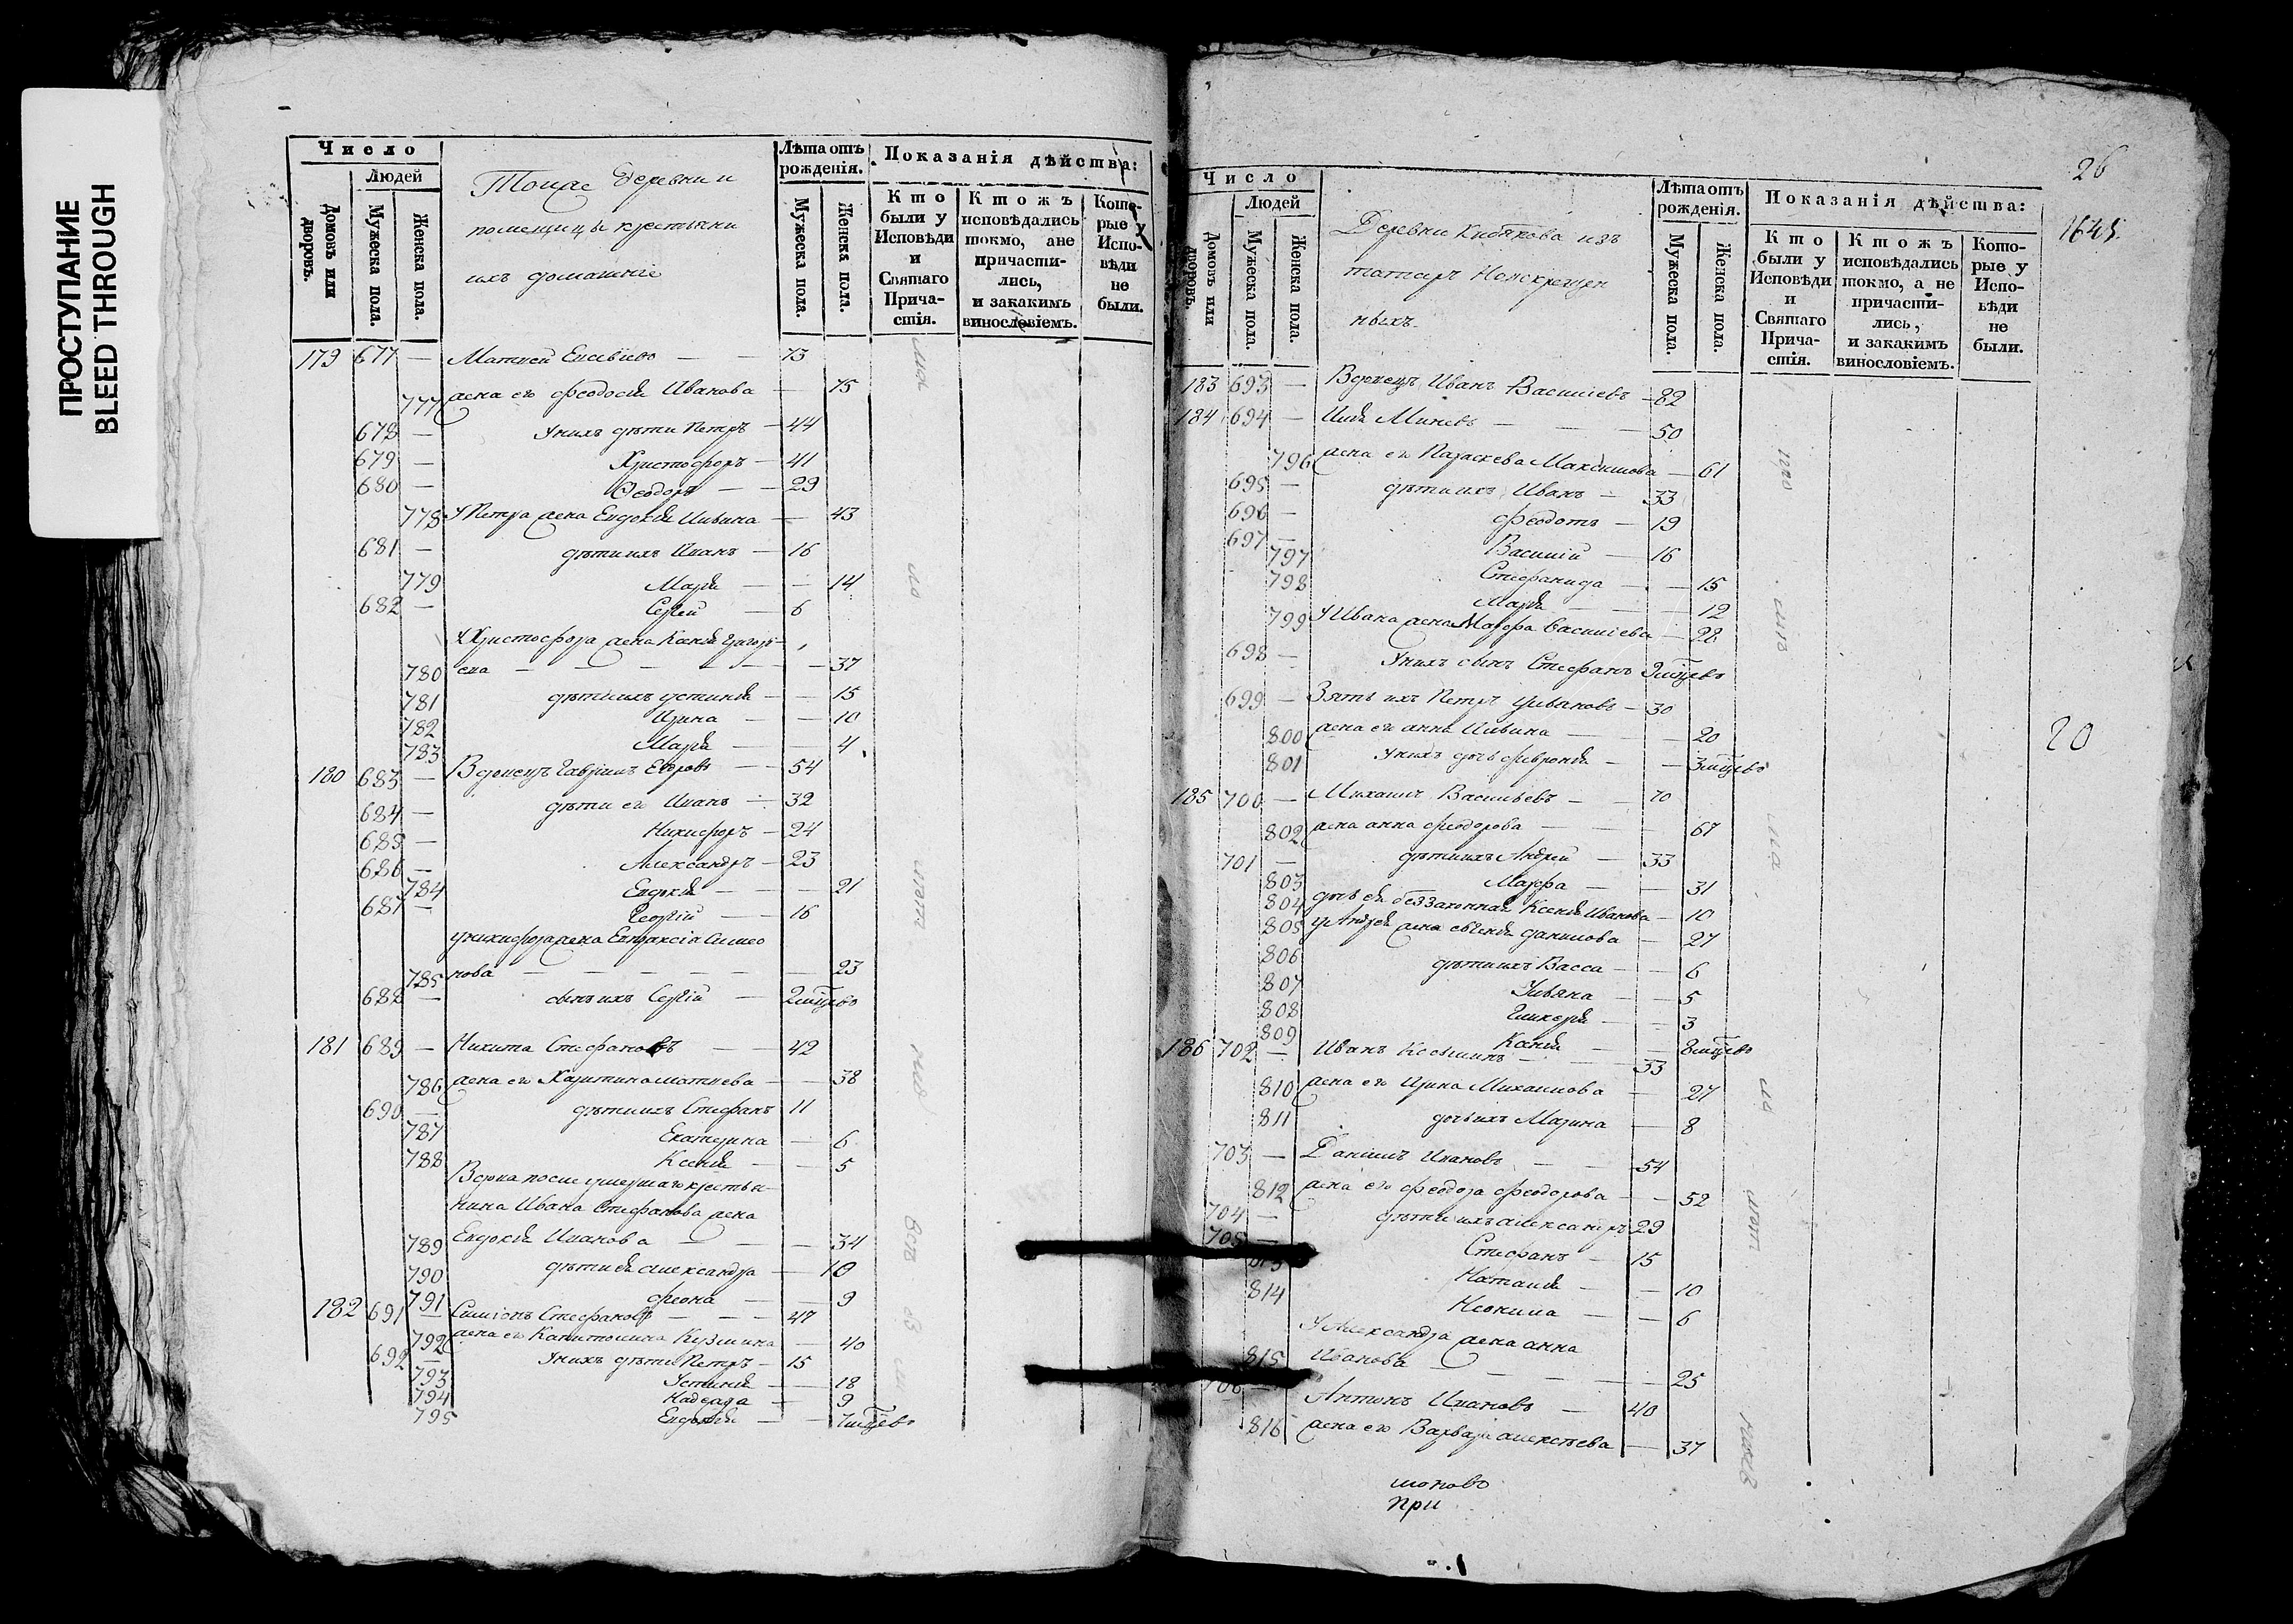 ПРОСТУПАНИЕ
BLEED THROUGH
Число
Людей
Домовъ или дворовъ.
Мужеска пола.
Женска пола.
Тоже деревни
помещицы крестьяни
ихъ домашніе
Лѣта отъ рожденія.
Мужеска пола.
Женска пола.
Показанія дѣйства:
Кто были у Исповѣди и Святаго Причастія.
Ктожъ исповѣдались токмо, ане причастились, и закакимъ винословіемъ.
Которые у Исповѣди не были.
179 677 — Матѳей 73
777 жена его Феодосія Иванова — 75
678 — У нихъ дѣти Петръ — 44
679 — Христофоръ — 41
680 — Ѳеодоръ — 29
778 У Петра жена Евдокія — 43
681 — дѣти ихъ Иванъ — 16
779 Марія — 14
682 — Сергей — 6
У Христофора жена Ксенія Григорь-
780 ева — 37
781 дѣти ихъ Устинія — 15
782 Ирина — 10
783 Марія — 4
180 683 — Вдовецъ Гаврилъ Егоровъ — 54
684 — дѣти его Иванъ — 32
685 — Никифоръ — 24
686 — Александръ — 23
784 Евдокія — 21
687 — Георгій — 16
У Никифора жена Евпраксіа Симео
785 нова — 23
688 — сынъ ихъ Сергій — 2
181 689 — Никита Стефановъ — 42
786 жена его Харитина Матвева — 38
690 — дѣти ихъ Стефанъ 11
787 Екатерина — 6
788 Ксенія — 5
Вдова после умершаго крестья-
нина Ивана Стефанова жена
789 Евдокія Иванова — 34
790 дѣти ея Александра — 10
791 Феона — 9
182 691 — Симіонъ Стефановъ — 47
792 жена его Капитолина Кузмина — 40
692 — У нихъ дѣти Петръ — 15
793 Устинія — 18
794 Надежда — 9
795 Евдокія —
26
1645
20
Число
Людей
Домовъ или дворовъ.
Мужеска пола.
Женска пола.
Деревни Кибякова изъ
татаръ
ныхъ.
Лѣта отъ рожденія.
Мужеска пола.
Женска пола.
Показанія дѣйства:
Кто были у Исповѣди и Святаго Причастія.
Ктожъ исповѣдались токмо, а не причастились, и закакимъ винословіемъ.
Которые у Исповѣди не были.
183 693 — Вдовецъ Иванъ Василіевъ — 82
184 694 — Илія Минеевъ — 50
796 жена его Параскева Максимова — 61
695 — дѣти ихъ Иванъ — 33
696 — Феодотъ — 19
697 — Василій — 16
797 Стефанида — 15
798 Марія — 12
799 У Ивана жена Марфа Василіева — 28
698 — У нихъ сынъ Стефанъ
699 — Зять ихъ Петръ Ивановъ — 30
800 жена его Анна Ильина — 20
801 У нихъ дочь Февронія — 3
185 700 — Михаилъ Васильевъ — 70
802 жена Анна Феодорова — 67
701 — дѣти ихъ Андрей — 33
803 Марфа — 31
804 дочь ея беззаконная Ксенія Иванова — 10
805 У Андрея жена Евгенія Данилова — 27
806 дѣти ихъ Васса — 6
807 Ульяна — 5
808 Гликерія — 3
809 Ксенія — 8
186 702 — Иванъ — 33
810 жена его Ирина Михаилова — 27
811 дочь ихъ Марина — 8
703 — Данилъ Ивановъ — 54
812 жена его Феодора Феодорова — 52
704 — дѣти ихъ Александръ 29
705 — Стефанъ — 15
813 Наталія — 10
814 Неонила — 6
У Александра жена Анна
815 Иванова — 25
706 — Антонъ Ивановъ — 40
816 жена его Варвара Алексѣева — 37
при